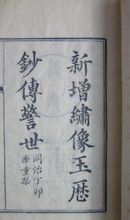 新增繡像玉歷
鈔傳警世
同治丁卯
季重栞